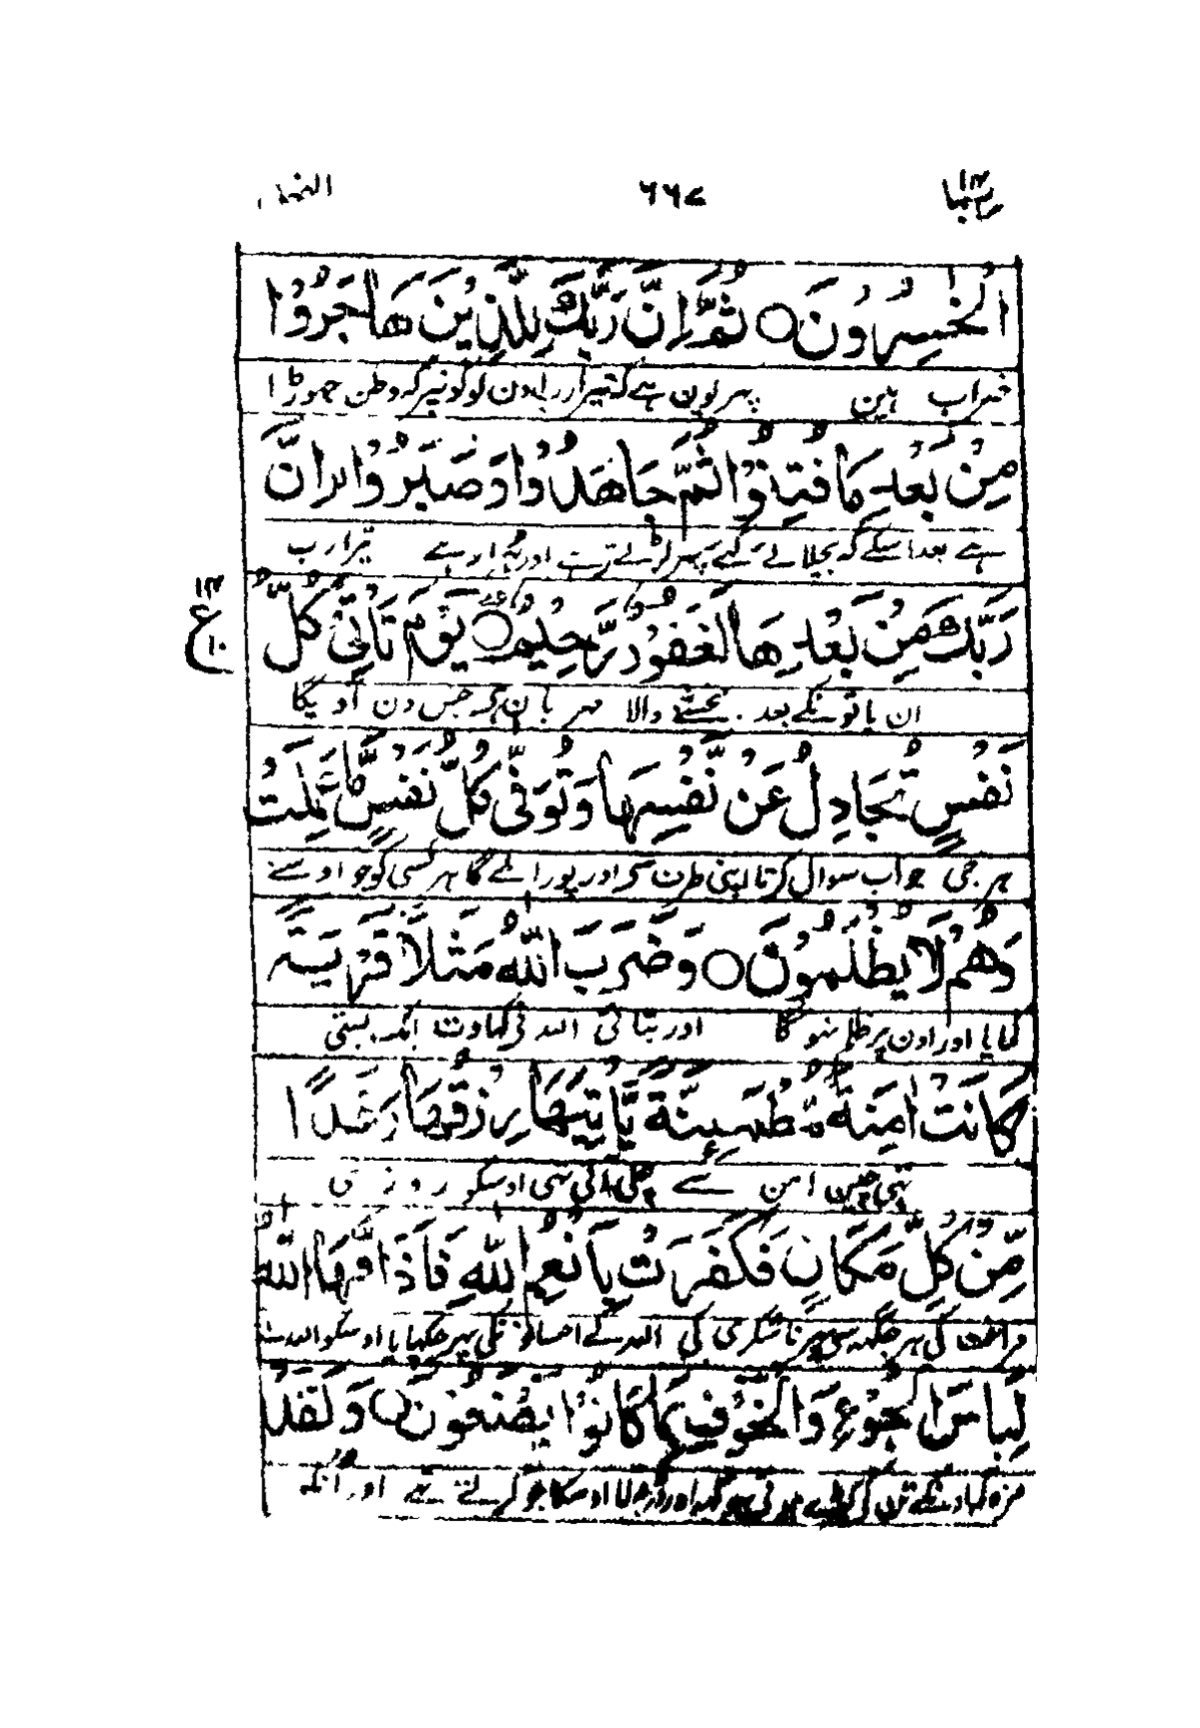 ربما ۱۴ ۶۶۷ النحل
الْخٰسِرُوْنَ ○ ثُمَّ اِنَّ رَبَّكَ لِلَّذِیْنَ هَاجَرُوْا
خراب ہین پہر یون ہے کہ تیرا رب اون لوگونپر کہ وطن چھوڑا
مِنْۢ بَعْدِ مَا فُتِنُوْا ثُمَّ جَاهَدُوْا وَصَبَرُوْا اِنَّ
ہے بعد اسکے کہ بچلائے گئے پہر لڑتے رہے اور ٹہرے رہے تیرا رب
رَبَّكَ مِنْۢ بَعْدِهَا لَغَفُوْرٌ رَّحِیْمٌ ○ یَوْمَ تَاْتِیْ كُلُّ
۱۴ ع ۱۰
ان باتونکے بعد بخشنے والا مہربان ہے جس دن آویگا
نَفْسٍ تُجَادِلُ عَنْ نَّفْسِهَا وَتُوَفّٰی كُلُّ نَفْسٍ مَّا عَمِلَتْ
ہر جی جواب سوال کرتا اپنی طرف سے اور پورا ملے گا ہر کسی کو جو اوسنے
وَهُمْ لَا یُظْلَمُوْنَ ○ وَضَرَبَ اللّٰهُ مَثَلًا قَرْیَةً
کمایا اور اون پر ظلم نہوگا اور بتائی اللہ نی کہاوت ایک بستی
كَانَتْ اٰمِنَةً مُّطْمَىِٕنَّةً یَّاْتِیْهَا رِزْقُهَا رَغَدًا
تہی چین امن سے چلی آتی تہی اوسکو روزی
مِّنْ كُلِّ مَكَانٍ فَكَفَرَتْ بِاَنْعُمِ اللّٰهِ فَاَذَاقَهَا اللّٰهُ
فراغت کی ہر جگہہ سی پہر ناشکری کی اللہ کے احسانونکی پہر چکہایا اوسکو اللہ نے
لِبَاسَ الْجُوْعِ وَالْخَوْفِ بِمَا كَانُوْا یَصْنَعُوْنَ ○ وَلَقَدْ
مزہ کہ اوسکے تن کے کپڑے ہوئی بہوکھہ اور ڈر بدلا اوسکا جو کرتے تہے اور انکو